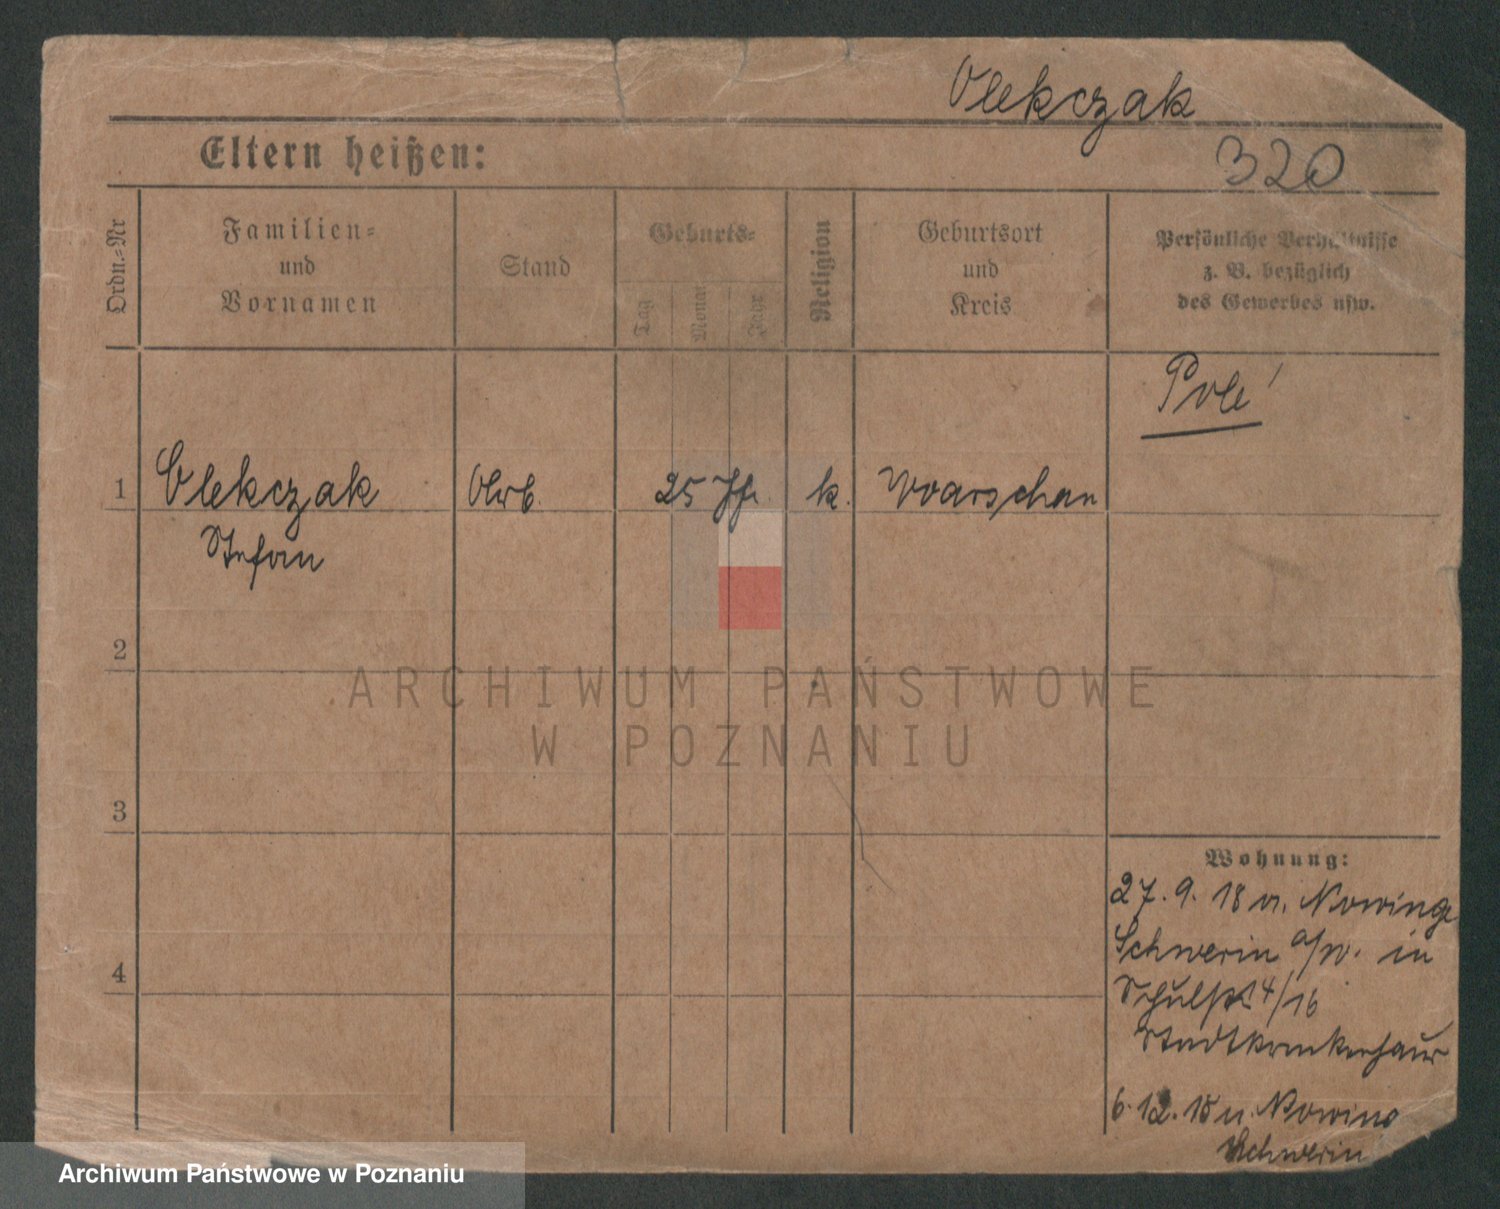 Olekczak
Eltern heißen:
320
Ordn.-Nr
Familien-
und
Vornamen
Stand
Geburts-
Tag
Monat
Jahr
Religion
Geburtsort
und
Kreis
Persönliche Verhältnisse
z. B. bezüglich
des Gewerbes usw.
Pole
1
Olekczak
Arb.
25 Jhr.
k.
Warschau
Stefan
2
ARCHIWUM PAŃSTWOWE
W POZNANIU
3
Wohnung:
27. 9. 18 v. Nowing
Schwerin a/W. in
Schulstr 4/16
Stadtkrankenhaus
4
6. 12. 18 n. Nowing
Schwerin
Archiwum Państwowe w Poznaniu